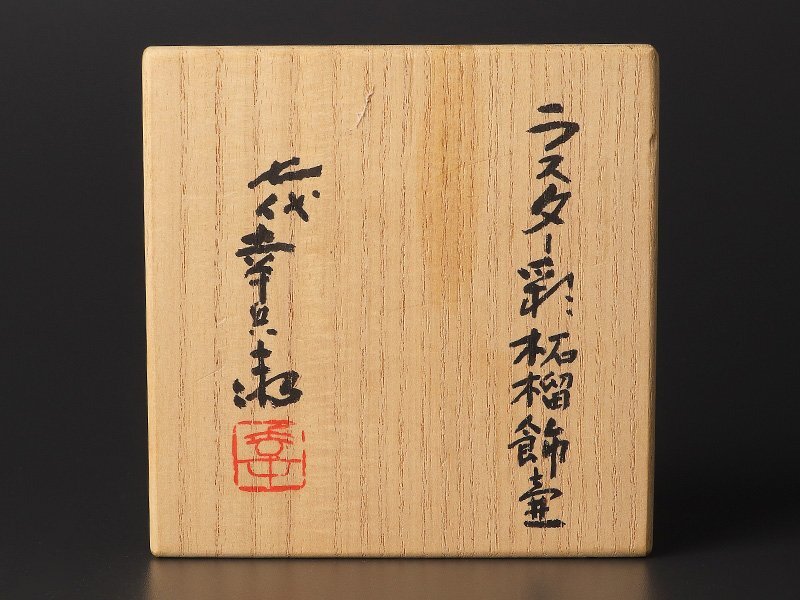 ラスター彩柘榴飾壷
七代幸兵衛
幸